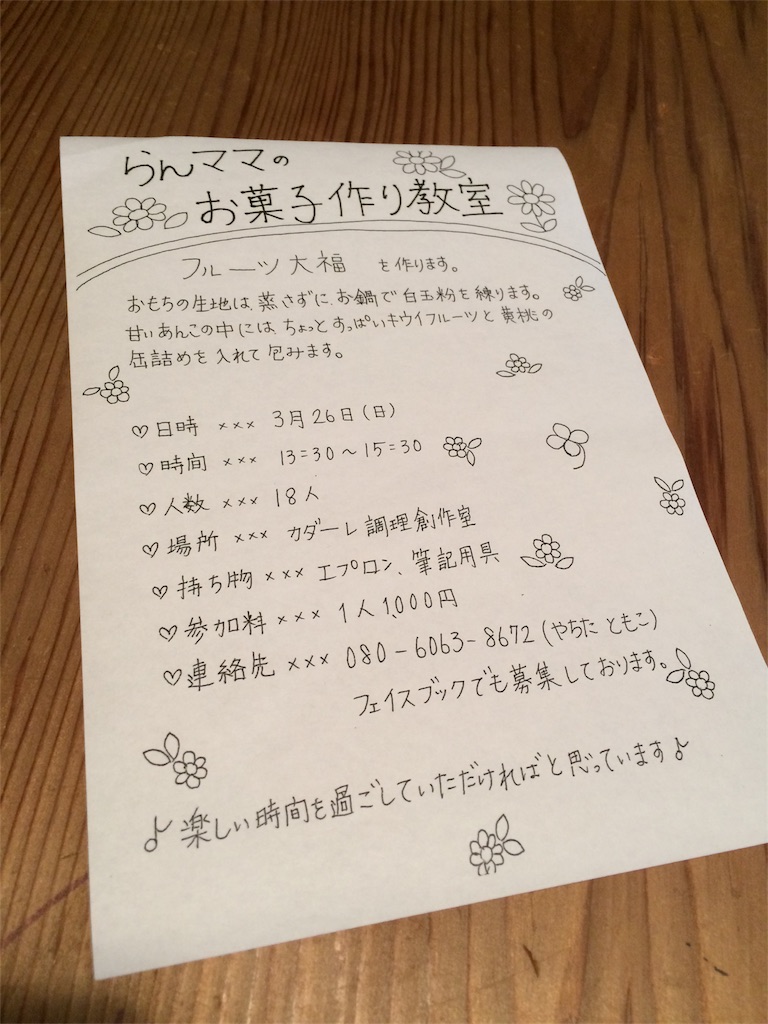 らんママの
お菓子作り教室
フルーツ大福 を作ります。
おもちの生地は、蒸さずに、お鍋で白玉粉を練ります。
甘いあんこの中には、ちょっとすっぱいキウイフルーツと黄桃の
缶詰めを入れて包みます。
♡日時 ××× 3月26日(日)
♡時間 ××× 13=30〜15=30
♡人数 ××× 18人
♡場所 ××× カダーレ調理創作室
♡持ち物 ××× エプロン、筆記用具
♡参加料 ××× 1人1,000円
♡連絡先 ××× 080-6063-8672(やちた ともこ)
フェイスブックでも募集しております。
♪楽しい時間を過ごしていただければと思っています♪